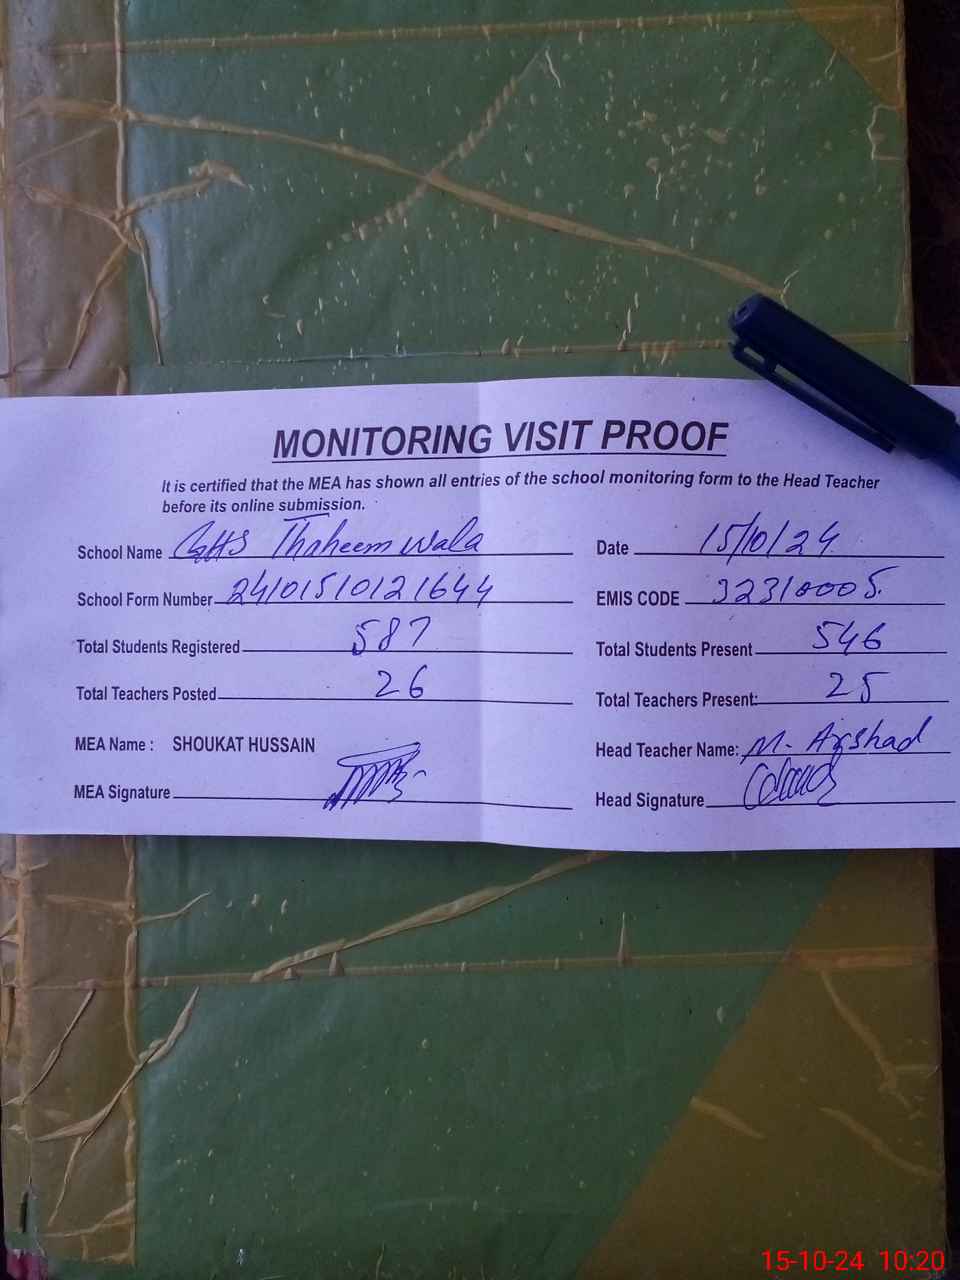 MONITORING VISIT PROOF
It is certified that the MEA has shown all entries of the school monitoring form to the Head Teacher
before its online submission.
School Name GHS Thaheem wala Date 15/10/24
School Form Number 24101510121644 EMIS CODE 32310005.
Total Students Registered 587 Total Students Present 546
Total Teachers Posted 26 Total Teachers Present: 25
MEA Name : SHOUKAT HUSSAIN Head Teacher Name: M. Arshad
MEA Signature Head Signature
15-10-24 10:20